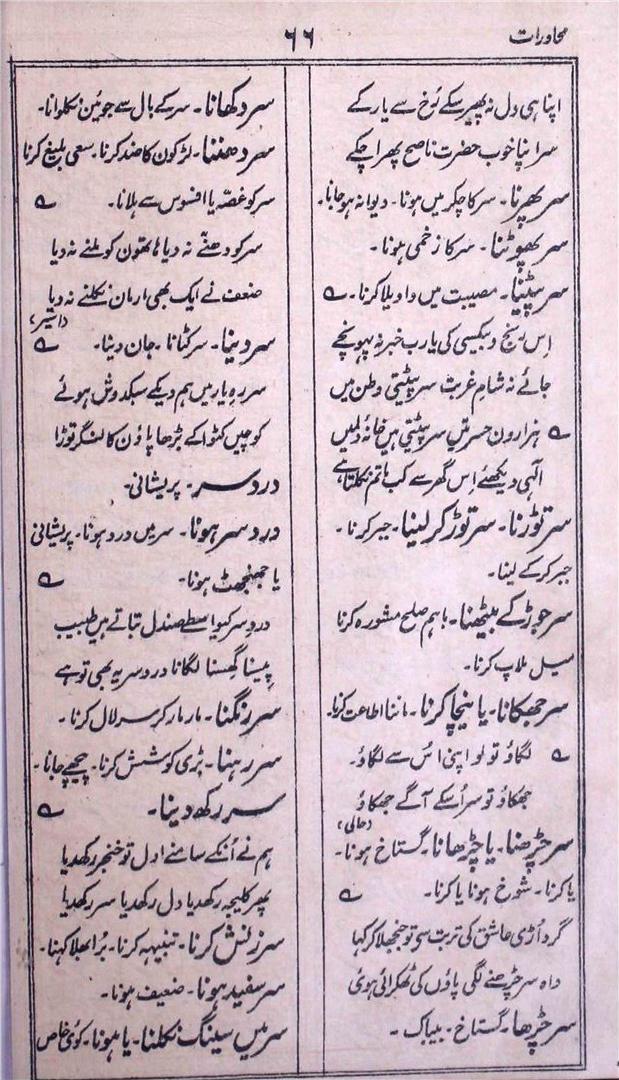 محاورات
۶۶
اپنا ہی دل نہ پھیر سکے رُخ سے یار کے
سر اپنا خوب حضرت ناصح پھرا چکے
سر پھرنا۔ سر کا چکر میں ہونا۔ دیوانہ ہو جانا۔
سر پھوٹنا۔ سر کا زخمی ہونا۔
سر پیٹنا۔ مصیبت میں واویلا کرنا۔ ؎
اس رنج و بیکسی کی یارب خبر نہ پہونچے
جائے نہ شام غربت سر پیٹتی وطن میں
؎ ہزارون حسرتیں سر پیٹتی ہیں خانۂ دلمیں
الٰہی دیکھئے اِس گھر سے کب ماتم نکلتا ہے
سر توڑنا۔ سر توڑ کر لینا۔ جبر کرنا۔
جبر کر کے لینا۔
سر جوڑ کے بیٹھنا۔ باہم صلح مشورہ کرنا
میل ملاپ کرنا۔
سر جھکانا۔ یا نیچا کرنا۔ ماننا اطاعت کرنا۔
؎ لگاؤ تو لو اپنی اُس سے لگاؤ۔
جھکاؤ تو سر اُسکے آگے جھکاؤ
(حالی)
سر چڑھنا۔ یا چڑھانا۔ گستاخ ہونا۔
یا کرنا۔ شورخ ہونا یا کرنا۔ ؎
گرد اُڑی عاشق کی تربت سی تو جھنجھلا کر کہا
واہ سر چڑھنے لگی پاؤں کی ٹھکرائی ہوئی
سر چڑھا۔ گستاخ۔ بیباک۔
سر دکھانا۔ سر کے بال سے جوئین نکلوانا۔
سر دھننا۔ لڑکون کا ضد کرنا۔ سعی بلیغ کرنا
سر کو غصّہ یا افسوس سے ہلانا۔ ؎
سر کو دھننے نہ دیا ہاتھون کو ملنے نہ دیا
ضعف نے ایک بھی ارمان نکلنے نہ دیا
سر دینا۔ سر کٹانا۔ جان دینا۔ ؎
سر رہ یار میں ہم دیکے سبکدوش ہوئے
کوچیں کٹوا کے بڑھا پاؤن کا لنگر توڑا
درد سر۔ پریشانی۔
درد سر ہونا۔ سر میں درد ہونا۔ پریشانی
یا جھنجھٹ ہونا۔ ؎
درد سر کیواسطے صندل بتاتے ہیں طبیب
پیسنا گھسنا لگانا درد سر یہ بھی تو ہے
سر رنگنا۔ مار مار کر سر لال کرنا۔
سر رہنا۔ بڑی کوشش کرنا۔ پیچھے جانا۔
سر رکھ دینا۔ ؎
ہم نے اُنکے سامنے اول تو خنجر رکھدیا
پھر کلیجہ رکھدیا دل رکھدیا سر رکھدیا
سرزنش کرنا۔ تنبیہہ کرنا۔ بُرا بھلا کہنا۔
سر سفید ہونا۔ ضعیف ہونا۔
سر میں سینگ نکلنا۔ یا ہونا۔ کوئی خاص